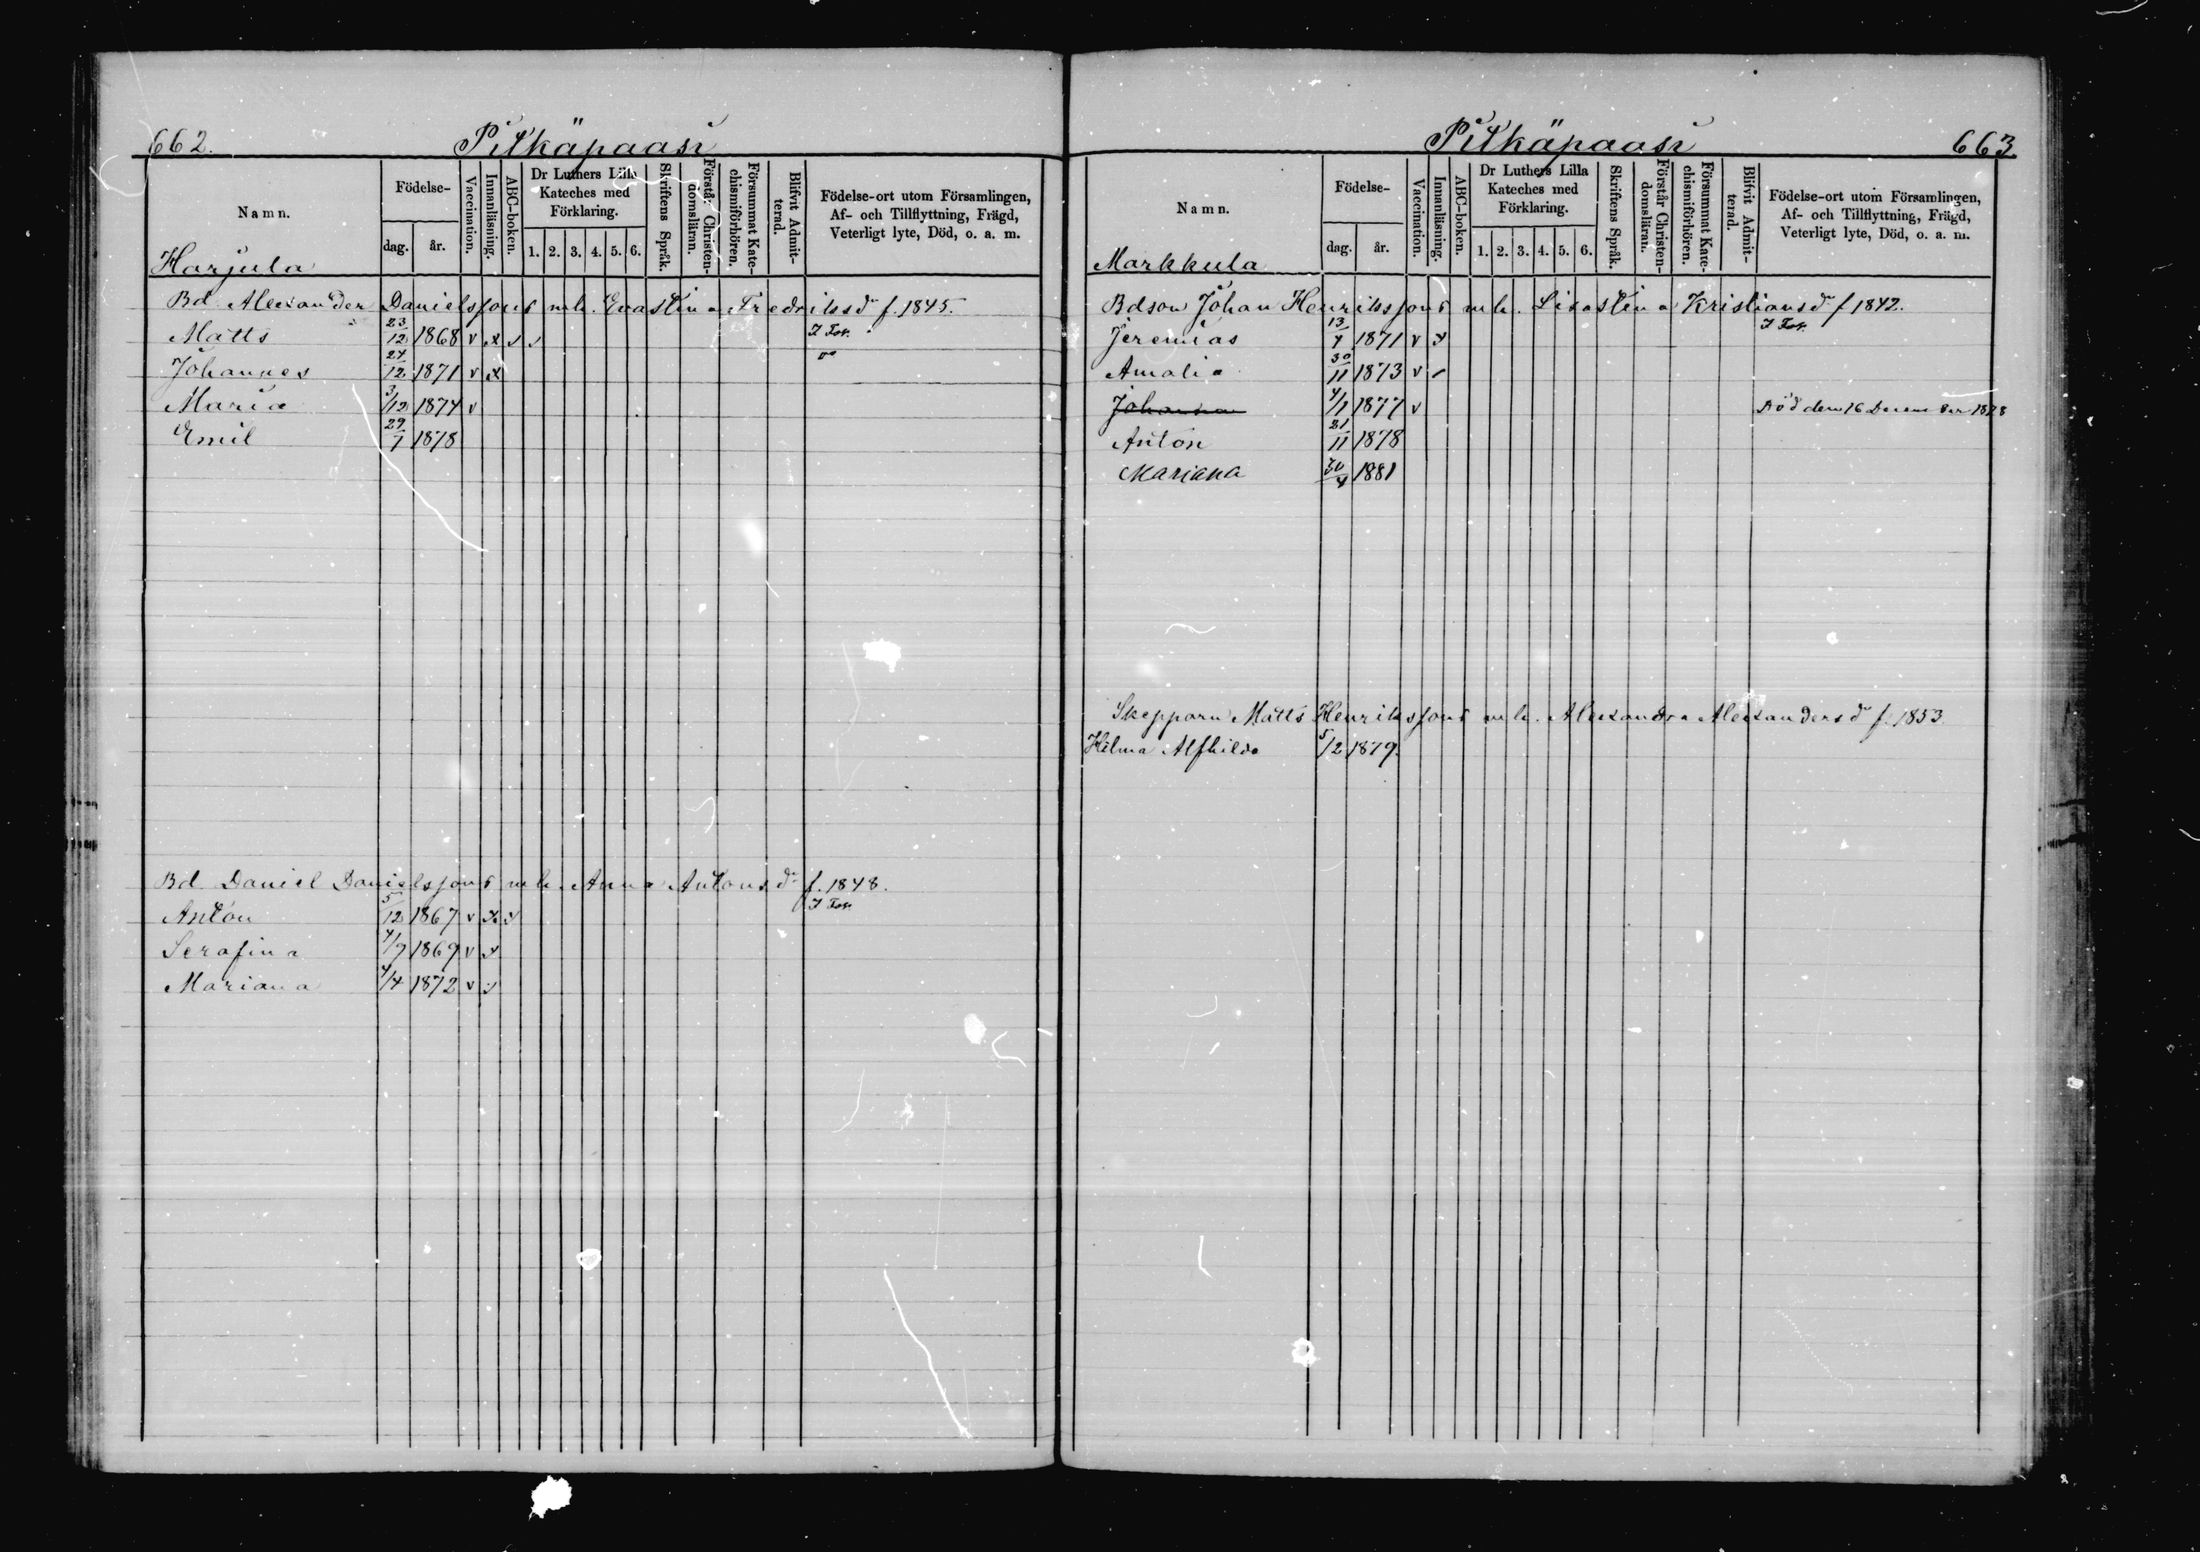 662.
Pitkäpaasi
Namn.
Födelse-
dag.
år.
Vaccination.
Innanläsning.
ABC-boken.
Dr Luthers Lilla
Kateches med
Förklaring.
1. 2. 3. 4. 5. 6.
Skriftens Språk.
Förstår Christen-
domsläran.
Försummat Kate-
chismiförhören.
Blifvit Admit-
terad.
Födelse-ort utom Församlingen,
Af- och Tillflyttning, Frägd,
Veterligt lyte, Död, o. a. m.
Harjula
Bd. Alexander Danielsson o. m. h. Evastina Fredriksdr f. 1845.
Matts 23/12 1868 v x v v
Johannes 24/12 1871 v x
Maria 3/12 1874 v
Emil 29/1 1878
Bd. Daniel Danielsson o. m. h. Anna Antonsdr f. 1848.
Anton 5/12 1867 v x v
Serafina 4/9 1869 v x
Mariana 4/4 1872 v v
Pitkäpaasi
663.
Namn.
Födelse-
dag.
år.
Vaccination.
Innanläsning.
ABC-boken.
Dr Luthers Lilla
Kateches med
Förklaring.
1. 2. 3. 4. 5. 6.
Skriftens Språk.
Förstår Christen-
domsläran.
Försummat Kate-
chismiförhören.
Blifvit Admit-
terad.
Födelse-ort utom Församlingen,
Af- och Tillflyttning, Frägd,
Veterligt lyte, Död, o. a. m.
Markkula
Bdson Johan Henriksson o. m. h. Lisastina Kristiansdr f 1842.
Jeremias 1871 v x
Amalia 30/11 1873 v
Johanna 4/1 1877 v Död den 16 December 1878
Anton 21/11 1878
Mariana 30/4 1881
Skepparn Matts Henriksson o. m. h. Alexandra Alexandersdr f. 1853.
Hilma Alfhilda 5/2 1879.